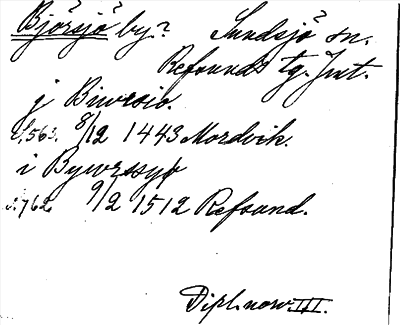 Björsjö by? Sundsjö sn.
Refsunds tg. Jmt.
j Biwrsio.
S. 563. 8/12 1443 Mordvik.
i Bywrssyo
S. 762. 9/2 1512 Refsund.
Dipl. norv. III.